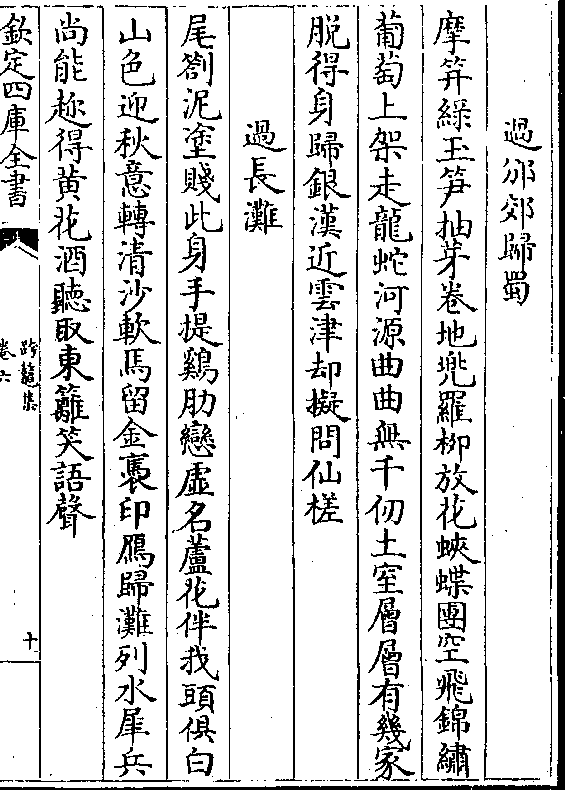 過邠郊歸蜀
摩笄緑玉笋抽芽卷地兜羅柳放花蛺蝶團空飛錦繡
葡萄上架走龍蛇河源曲曲無千仞土室層層有幾家
脱得身歸銀漢近雲津却擬問仙槎
過長灘
尾劄泥塗賤此身手提鷄肋戀虚名蘆花伴我頭俱白
山色迎秋意轉清沙軟馬留金褭印鴈歸灘列水犀兵
尚能趂得黄花酒聽取東籬笑語聲
欽定四庫全書
跨鼇集
卷六
十